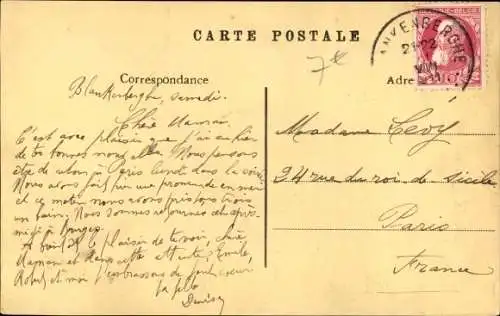 CARTE POSTALE
Correspondance
Adre
BLANKENBERGHE
7€
Blankenberghe, samedi.
Chère Maman,
C'est avec plaisir que j'ai eu hier
de tes bonnes nouvelles. Nous pensons
être de retour à Paris lundi dans la soirée
Nous avons fait hier une promenade en mer
et ce matin nous avons pris tous trois
un bain. Nous sommes retournés cet après-
midi à Bruges.
le plaisir de te voir, chère
Maman et Emile,
Robert et moi t'embrassons de tout coeur
ta fille
Denise
Madame Levy
24 rue du roi de Sicile
Paris
France